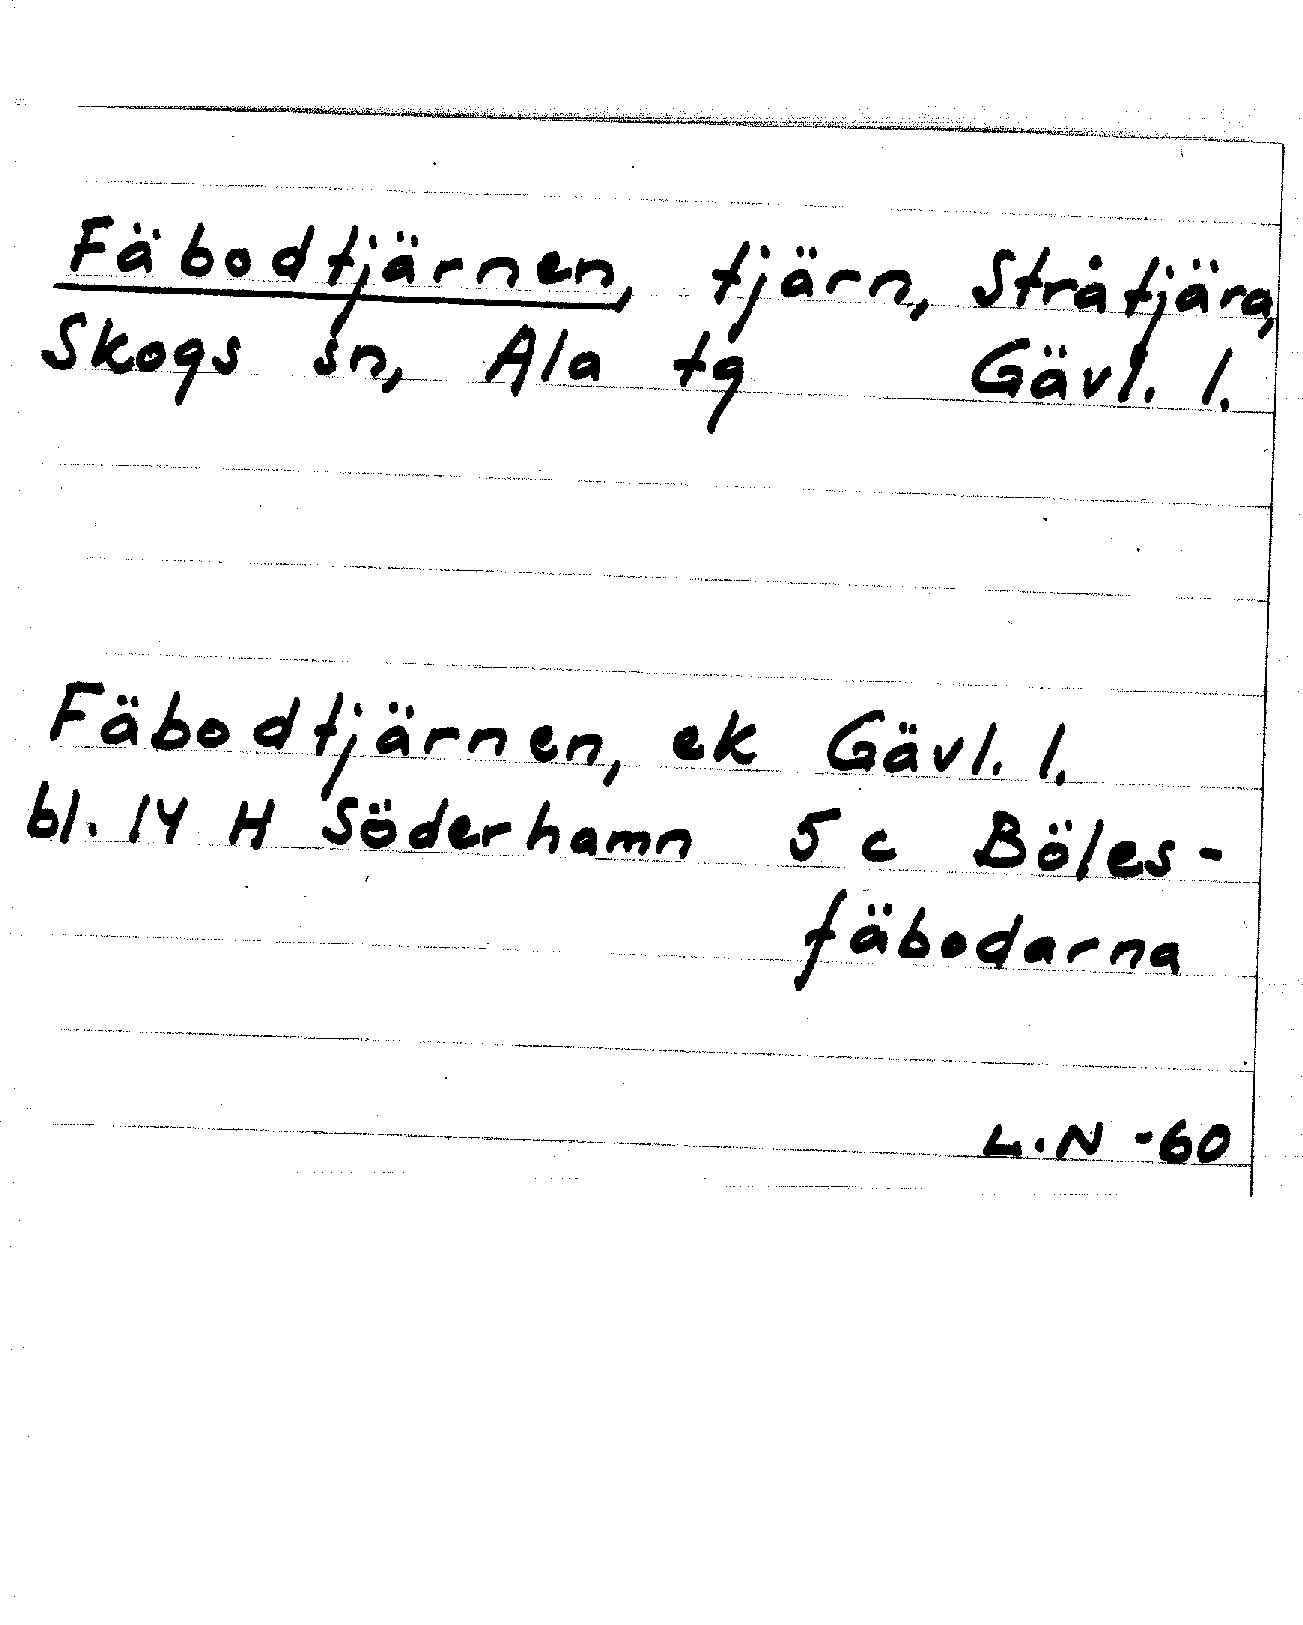 Fäbodtjärnen, tjärn, Stråtjära,
Skogs sn, Ala tg Gävl. l.
Fäbodtjärnen, ek Gävl. l.
bl. 14 H Söderhamn 5 c Böles-
fäbodarna
L.N -60